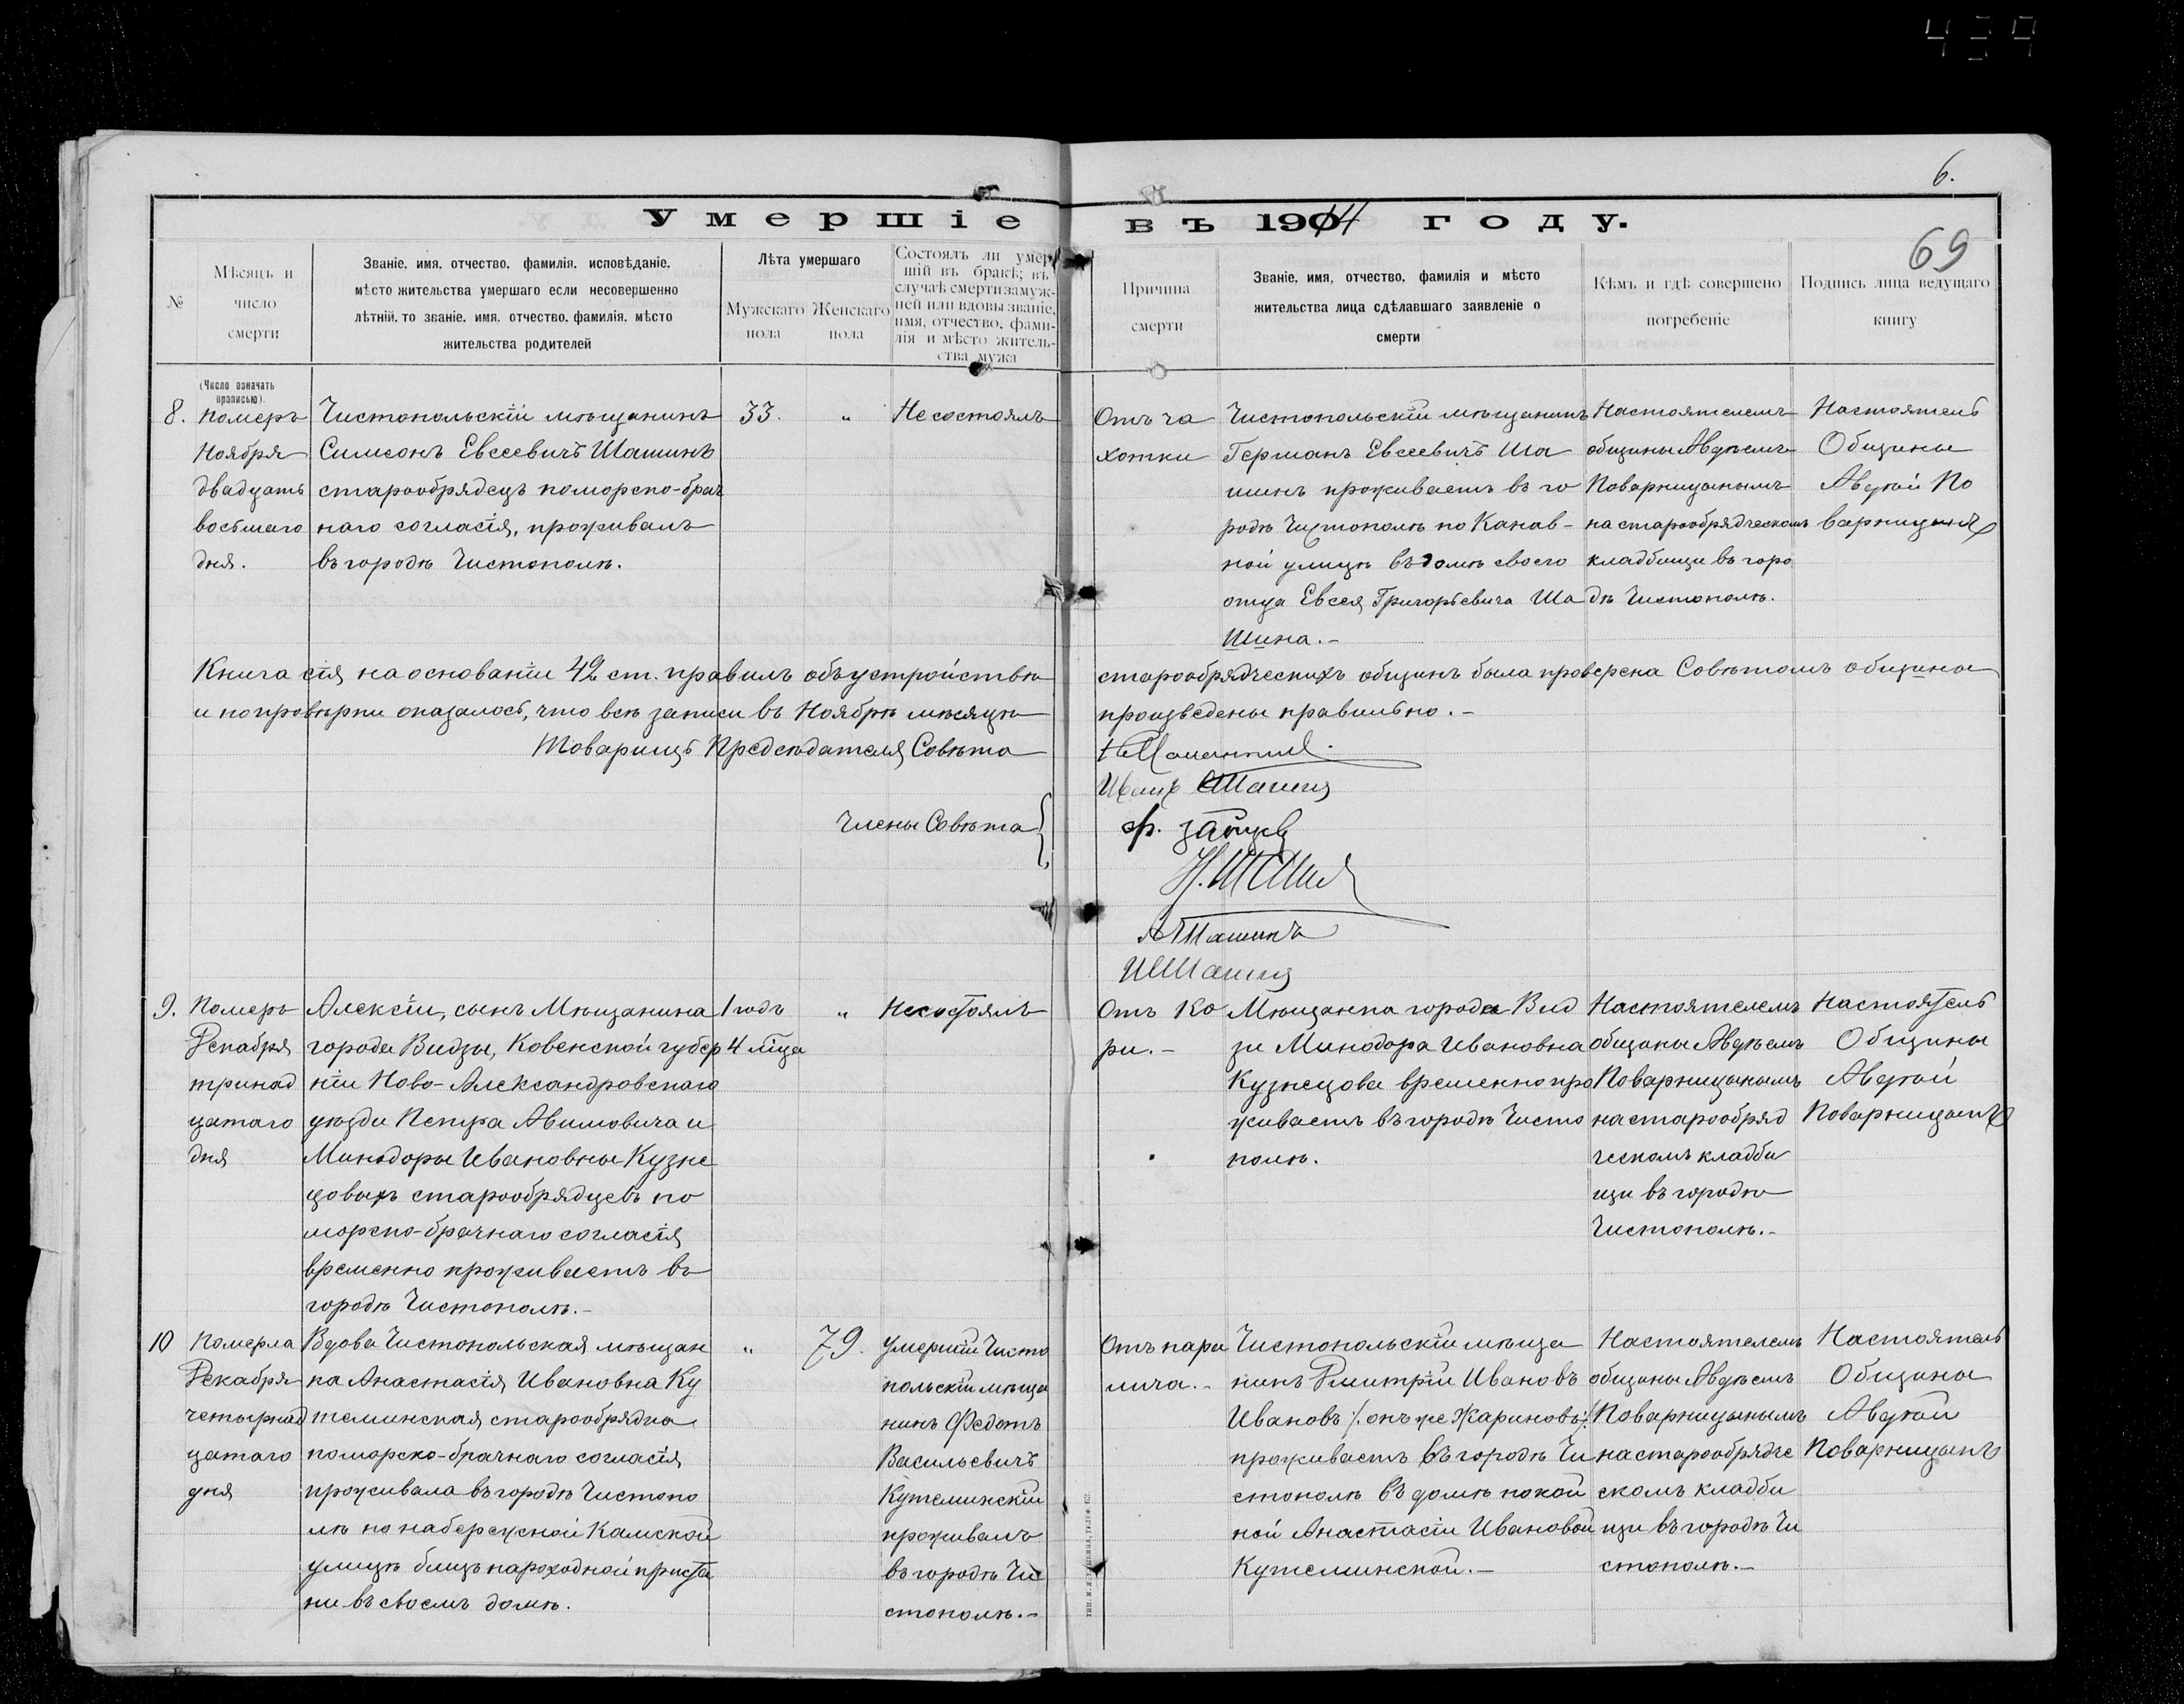 439
6.
Умершіе въ 1914 году.
69
№
Мѣсяцъ и
число
смерти
Званіе, имя, отчество, фамилія, исповѣданіе,
мѣсто жительства умершаго если несовершенно
лѣтній, то званіе, имя, отчество, фамилія, мѣсто
жительства родителей
Лѣта умершаго
Мужскаго
пола
Женскаго
пола
Состоялъ ли умер
шій въ бракѣ; въ
случаѣ смерти замуж-
ней или вдовы званіе,
имя, отчество, фами-
лія и мѣсто житель-
ства мужа
Причина
смерти
Званіе, имя, отчество, фамилія и мѣсто
жительства лица сдѣлавшаго заявленіе о
смерти
Кѣмъ и гдѣ совершено
погребеніе
Подпись лица ведущаго
книгу
(Число означать
прописью).
8.
Померъ
Ноября
двадцать
восьмаго
дня.
Чистопольскій мѣщанинъ
Симеонъ Евсеевичъ Шашинъ
старообрядецъ поморско-брач
наго согласія, проживалъ
въ городѣ Чистополѣ.
33.
"
Не состоялъ
Отъ ча
хотки
Чистопольскій мѣщанинъ
Германъ Евсеевичъ Ша
шинъ проживаетъ въ го
родѣ Чистополѣ по Канав-
ной улицѣ въ домѣ своего
отца Евсея Григорьевича Ша
шина.-
Настоятелемъ
общины Авдѣемъ
Поварницынымъ
на старообрядческомъ
кладбищи въ горо
дѣ Чистополѣ.
Настоятель
Общины
Авдѣй По
варницынъ
Книга сія на основаніи 42 ст. правилъ объ устройствѣ старообрядческихъ общинъ была проверена Совѣтомъ общины
и по провѣрки оказалось, что всѣ записи въ Ноябрѣ мѣсяцѣ произведены правильно.-
Товарищъ Предсѣдателя Совѣта
Члены Совѣта
Шашинъ
Ф. Зайцев
А Шашинъ
И Шашинъ
9.
Померъ
Декабря
тринад
цатаго
дня
Алексій, сынъ Мѣщанина
города Видзы, Ковенской губер
ніи Ново-Александровскаго
уѣзда Петра Авимовича и
Минодоры Ивановны Кузне
цовыхъ старообрядцевъ по
морско-брачнаго согласія
временно проживаетъ въ
городѣ Чистополѣ.-
1 годъ
4 мѣца
"
Не состоялъ
Отъ Ко
ри.-
Мѣщанка города Вид
зы Минодора Ивановна
Кузнецова временно про
живаетъ въ городѣ Чисто
полѣ.
Настоятелемъ
общины Авдѣемъ
Поварницынымъ
на старообряд
ческомъ кладби
щи въ городѣ
Чистополѣ.-
Настоятель
Общины
Авдѣй
Поварницынъ
10
Померла
Декабря
четырнад
цатаго
дня
Вдова Чистопольская мѣщан
ка Анастасія Ивановна Ку
теминская старообрядка
поморско-брачнаго согласія
проживала въ городѣ Чистопо
лѣ по набережной Камской
улицѣ близъ пароходной приста
ни въ своемъ домѣ.
"
79.
Умершій Чисто
польскій мѣща
нинъ Федотъ
Васильевичъ
Кутеминскій
проживалъ
въ городѣ Чи
стополѣ.-
Отъ пара
лича.-
Чистопольскій мѣща
нинъ Дмитрій Ивановъ
Ивановъ /. онъ же Жариновъ ./
проживаетъ въ городѣ Чи
стополѣ въ домѣ покой
ной Анастасіи Ивановой
Кутеминской.-
Настоятелемъ
общины Авдѣемъ
Поварницынымъ
на старообрядче
скомъ кладби
щи въ городѣ Чи
стополѣ.-
Настоятель
Общины
Авдѣй
Поварницынъ